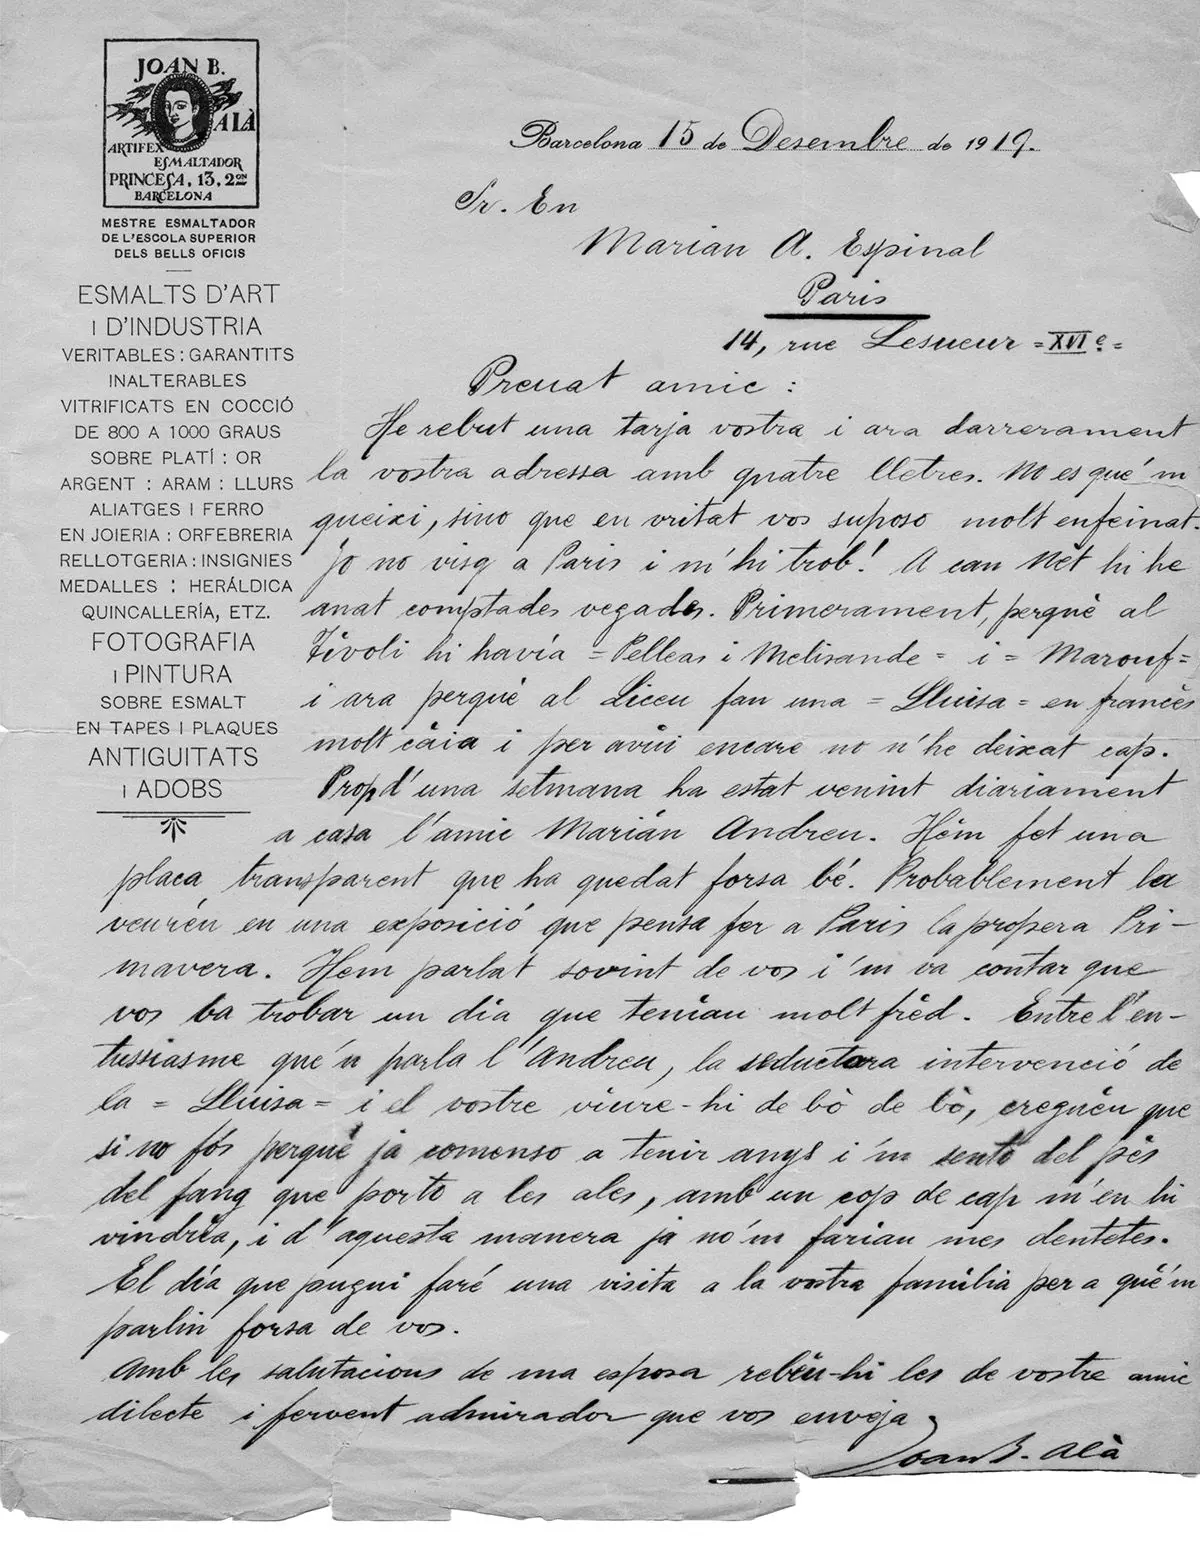 JOAN B.
ALÀ
ARTIFEX
ESMALTADOR
PRINCESA, 13, 2ON
BARCELONA
MESTRE ESMALTADOR
DE L'ESCOLA SUPERIOR
DELS BELLS OFICIS
ESMALTS D'ART
I D'INDUSTRIA
VERITABLES : GARANTITS
INALTERABLES
VITRIFICATS EN COCCIÓ
DE 800 A 1000 GRAUS
SOBRE PLATÍ : OR
ARGENT : ARAM : LLURS
ALIATGES I FERRO
EN JOIERIA : ORFEBRERIA
RELLOTGERIA : INSIGNIES
MEDALLES : HERÁLDICA
QUINCALLERÍA, ETZ.
FOTOGRAFIA
I PINTURA
SOBRE ESMALT
EN TAPES I PLAQUES
ANTIGUITATS
I ADOBS
Barcelona 15 de Desembre de 1919.
Sr. En
Marian A. Espinal
Paris
14, rue Lesueur =XVIe=
Preuat amic :
He rebut una tarja vostra i ara darrerament
la vostra adressa amb quatre lletres. No es què'm
queixi, sino que en vritat vos suposo molt enfeinat.
Jo no visq a Paris i m'hi trob! A can Nèt hi he
anat comptades vegades. Primerament, perquè al
Tívoli hi havía = Pelleas i Melisande = i = Marouf =
i ara perquè al Liceu fan una = Lluisa = en francès
molt càia i per avui encare no n'he deixat cap.
Prop d'una setmana ha estat venint diariament
a casa l'amic Marián Andreu. Hèm fet una
placa transparent que ha quedat forsa bé. Probablement la
veurèn en una exposició que pensa fer a Paris la propera Pri-
mavera. Hem parlat sovint de vos i'm va contar que
vos va trobar un día que tenían molt frèd. Entre l'en-
tussiasme que'n parla l'Andreu, la seductora intervenció de
la = Lluisa = i el vostre viure-hi de bò de bò, creguèu que
si no fós perquè ja comenso a tenir anys i'm sento del pès
del fang que porto a les ales, amb un cop de cap m'en hi
vindría, i d'aquesta manera ja no'm farían mes dentetes.
El día que pugui faré una visita a la vostra família per a què'm
parlin forsa de vos.
Amb les salutacions de ma esposa rebèu-hi les de vostre amic
dilecte i fervent admirador que vos enveja,
Joan B. Alà